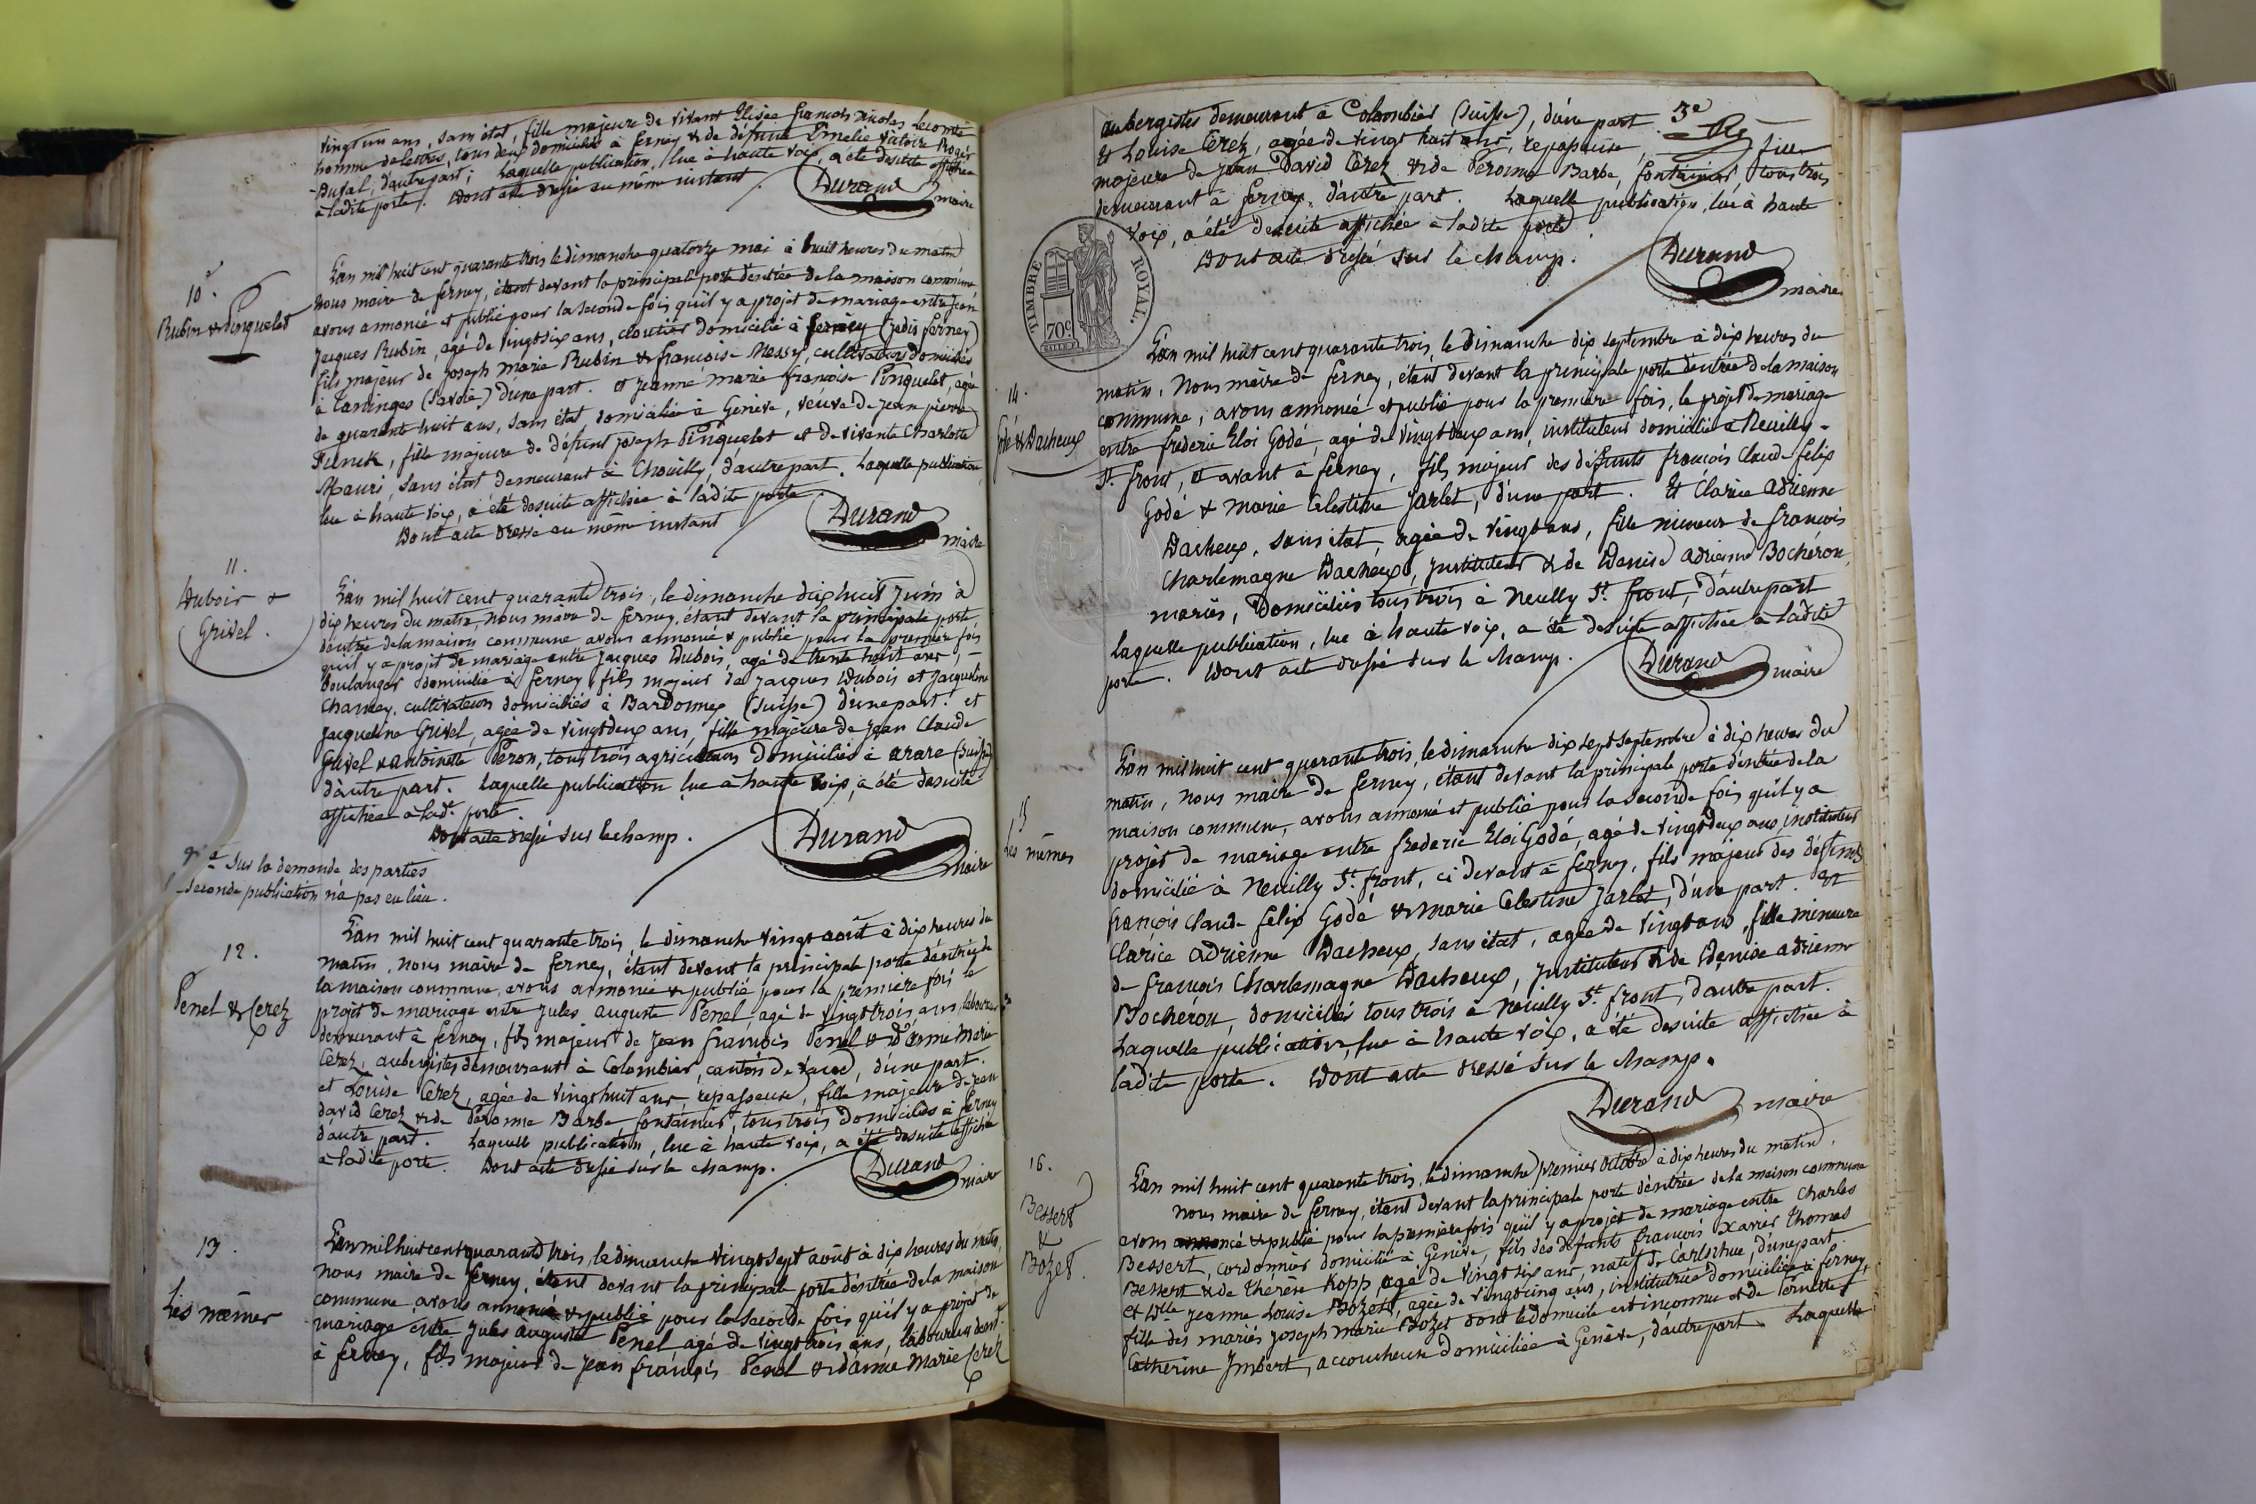 vingt un ans, sans état, fille majeure de vivant Elisée françois Nicolas Lecomte
homme de lettres, tous deux domiciliés à ferney & de défunte Emelie Victoire Roger
Duval, d'autre part; Laquelle publication, lue à haute voix, a été desuite affichée
à ladite porte. Dont acte dressé au même instant.
Durand
maire
10.
Rubin & Pinquelet
L'an mil huit cent quarante trois le dimanche quatorze mai à huit heures du matin
Nous maire de ferney, étant devant la principale porte d'entrée de la maison commune
avons annoncé et publié pour la seconde fois qu'il y a projet de mariage entre Jean
Jacques Rubin, agé de vingt six ans, cloutier domicilié à ferney (jadis ferney)
fils majeur de joseph marie Rubin & françoise Messy, cultivateurs domiciliés
à Taninges (Savoie) d'une part. et jeanne marie françoise Pinquelet, agée
de quarante huit ans, sans état domiciliée à Genève, veuve de jean pierre
Funck, fille majeure de défunt joseph Pinquelet et de vivante Charlotte
Mauri, sans état demeurant à Chouilly, d'autre part. Laquelle publication
lue à haute voix, a été desuite affichée à ladite porte
Dont acte dressé au même instant
Durand
maire
11.
Dubois &
Grivel.
L'an mil huit cent quarante trois, le dimanche dix huit juin à
dix heures du matin, nous maire de ferney, étant devant la principale porte
d'entrée de la maison commune avons annoncé & publié pour la premier fois
qu'il y a projet de mariage entre Jacques Dubois, agé de trente huit ans, –
boulanger domicilié à ferney fils majeur de Jacques Dubois et Jacqueline
Chamey, cultivateurs domiciliés à Bardonnex (Suisse) d'une part. et
Jacqueline Grivel, agée de vingt deux ans, fille majeure de jean Claude
Grivel & antoinette Peron, tous trois agriculteurs domiciliés à arare (Suisse)
d'autre part. Laquelle publication lue à haute voix, a été desuite
affichée à lad.e porte.
Dont acte dressé sur le champ.
Durand
maire
Sur la demande des parties
seconde publication n'a pas eu lieu.
12.
Penel & Cerez
L'an mil huit cent quarante trois, le dimanche vingt août à dix heures du
matin, nous maire de ferney, étant devant la principale porte d'entrée de
la maison commune, avons annoncé & publié pour la première fois le
projet de mariage entre Jules auguste Penel, agé de vingt trois ans, laboureur
demeurant à ferney, fils majeur de Jean françois Penel & d'anne Marie
Cerez, aubergistes demeurant à Colombier, canton de Vaud, d'une part.
et Louise Cerez, agée de vingt huit ans, repasseuse, fille majeure de jean
david Cerez & de Peronne Barbe, fontainier, tous trois domiciliés à ferney
d'autre part. Laquelle publication, lue à haute voix, a été desuite affichée
à ladite porte. Dont acte dressé sur le champ.
Durand
maire
13.
Les mêmes
L'an mil huit cent quarante trois, le dimanche vingt sept août à dix heures du matin,
nous maire de ferney, étant devant la principale porte d'entrée de la maison
commune avons annoncé & publié pour la seconde fois qu'il y a projet de
mariage entre Jules auguste Penel agé de vingt trois ans, laboureur demt.
à ferney, fils majeur de jean françois Penel & d'anne Marie Cerez
aubergistes demeurant à Colombier (Suisse), d'une part. 3e
Et Louise Cerez, agée de vingt huit ans, repasseuse, fille
majeure de jean David Cerez & de Peronne Barbe, fontainier, tous trois
demeurant à ferney, d'autre part. Laquelle publication, lue à haute
voix, a été desuite affichée à ladite porte
Dont acte dressé sur le champ.
Durand
maire
TIMBRE ROYAL.
70c
14.
Godé & Dacheux
L'an mil huit cent quarante trois, le dimanche dix septembre à dix heures du
matin, Nous maire de ferney, étant devant la principale porte d'entrée de la maison
commune, avons annoncé et publié pour la première fois, le projet de mariage
entre frederic Eloi Godé, agé de vingt deux ans, instituteur domicilié à Neuilly-
St. front, & avant à ferney, fils majeur des défunts françois Claude félix
Godé & Marie Celestine Jarlet, d'une part. Et Clarice adrienne
Dacheux, sans état, agée de vingt ans, fille mineure de françois
Charlemagne Dacheux, Instituteur & de Denise adrienne Bochéron,
mariés, domiciliés tous trois à Neuilly St. front, d'autre part
laquelle publication, lue à haute voix, a été desuite affichée à ladite
porte. Dont acte dressé sur le champ.
Durand
maire
15
Les mêmes
L'an mil huit cent quarante trois, le dimanche dix sept septembre à dix heures du
matin, nous maire de ferney, étant devant la principale porte d'entrée de la
maison commune, avons annoncé et publié pour la seconde fois qu'il y a
projet de mariage entre frederic Eloi Godé, agé de vingt deux ans, instituteur
domicilié à Neuilly St. front, ci devant à ferney, fils majeur des défunts
françois Claude félix Godé & Marie Celestine Jarlet, d'une part. Et
Clarice adrienne Dacheux, sans état, agée de vingt ans, fille mineure
de françois Charlemagne Dacheux, Instituteur & de Denise adrienne
Bochéron, domiciliés tous trois à Neuilly St. front, d'autre part.
Laquelle publication, lue à haute voix, a été desuite affichée à
ladite porte. Dont acte dressé sur le champ.
Durand
maire
16.
Bessert
&
Bozet.
L'an mil huit cent quarante trois, le dimanche premier octobre à dix heures du matin,
Nous maire de ferney, étant devant la principale porte d'entrée de la maison commune
avons annoncé & publié pour la première fois qu'il y a projet de mariage entre Charles
Bessert, cordonnier domicilié à Genève, fils des défunts françois Xavier Thomas
Bessert & de Thérèse Kopp, agé de vingt six ans, natif de Carlsrhue, d'une part.
et Dlle. jeanne Louise Bozet, agée de vingt cinq ans, institutrice domiciliée à ferney,
fille des mariés joseph marie Bozet dont le domicile est inconnu & de Pernette
Catherine Imbert, accoucheuse domiciliée à Genève, d'autre part. Laquelle